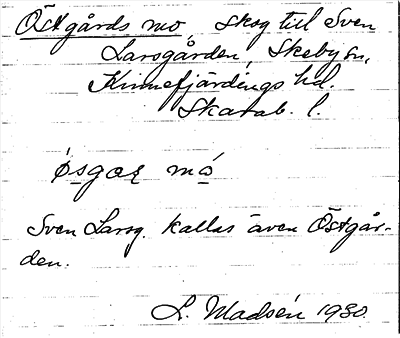 Östgårds mo, skog till Sven
Larsgården, Skeby sn,
Kinnefjärdings hd.
Skarab. l.
ǿsgaʀ mó
Sven Larsg. kallas även Östgår-
den.
L. Madsén 1930.